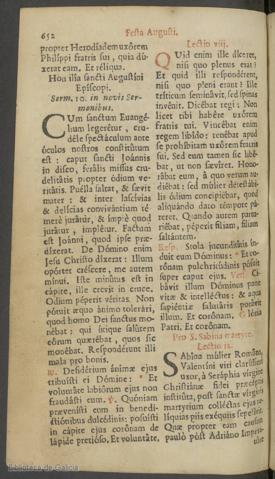 652
Festa Augusti.
propter Herodíadem uxórem
Philíppi fratris sui, quia dú-
xerat eam. Et réliqua.
Homilia sancti Augustini
Episcopi.
Serm. 10. in novis Ser-
monibus.
CUm sanctum Euangé-
lium legerétur, cru-
déle spectáculum ante
óculos nostros constitútum
est: caput sancti Joánnis
in disco, ferális míssus cru-
delitátis propter ódium ve-
ritátis. Puélla saltat, & sævit
mater: & inter lascívias
& delícias convivántium té-
merè jurátur, & ímpiè quod
jurátur, implétur. Factum
est Joánni, quod ipse præ-
díxerat. De Dómino enim
Jesu Christo díxerat: Illum
opórtet créscere, me autem
mínui. Iste minútus est in
cápite, ille crevit in cruce.
Odium péperit véritas. Non
pótuit æquo ánimo tolerári,
quod homo Dei sanctus mo-
nébat: qui útique salútem
eórum quærébat, quos sic
monébat. Respondérunt illi
mala pro bonis.
℟. Desidérium ánimæ ejus
tribuísti ei Dómine: * Et
voluntáte labiórum ejus non
fraudásti eum. ℣. Quóniam
prævenísti eum in benedi-
ctiónibus dulcédinis: posuísti
in cápite ejus corónam de
lápide pretióso. Et voluntáte.
Lectio viij.
QUid enim ille díceret,
nisi quo plenus erat?
Et quid illi respondérent,
nisi quo pleni erant? Ille
tríticum seminávit, sed spinas
invénit. Dicébat regi: Non
licet tibi habére uxórem
fratris tui. Vincébat enim
regem libído: tenébat apud
se prohíbitam uxórem fratris
sui. Sed eum tamen sic libé-
bat, ut non sævíret. Hono-
rábat eum, à quo verum au-
diébat: sed múlier detestábi-
lis ódium concipiébat, quod
aliquándo dato témpore pá-
reret. Quando autem partu-
riébat, péperit fíliam, fíliam
saltántem.
Resp. Stola jucunditátis ín-
duit eum Dóminus: * Et co-
rónam pulchritúdinis pósuit
super caput ejus. Vers. Ci-
bávit illum Dóminus pane
vitæ & intelléctus; & aqua
sapiéntiæ salutáris potávit
illum. Et corónam. Glória
Patri. Et corónam.
Pro S. Sabina martyre.
Lectio ix.
SAbína múlier Romána,
Valentíni viri claríssimi
uxor, à Seráphia vírgine
Christiánæ fídei præcéptis
institúta, post sanctæ vírginis
martyrium colléctas ejus re-
líquias piis exéquiis sepelívit.
Quæ propter eam causam
paulò pòst Adriáno Impera-